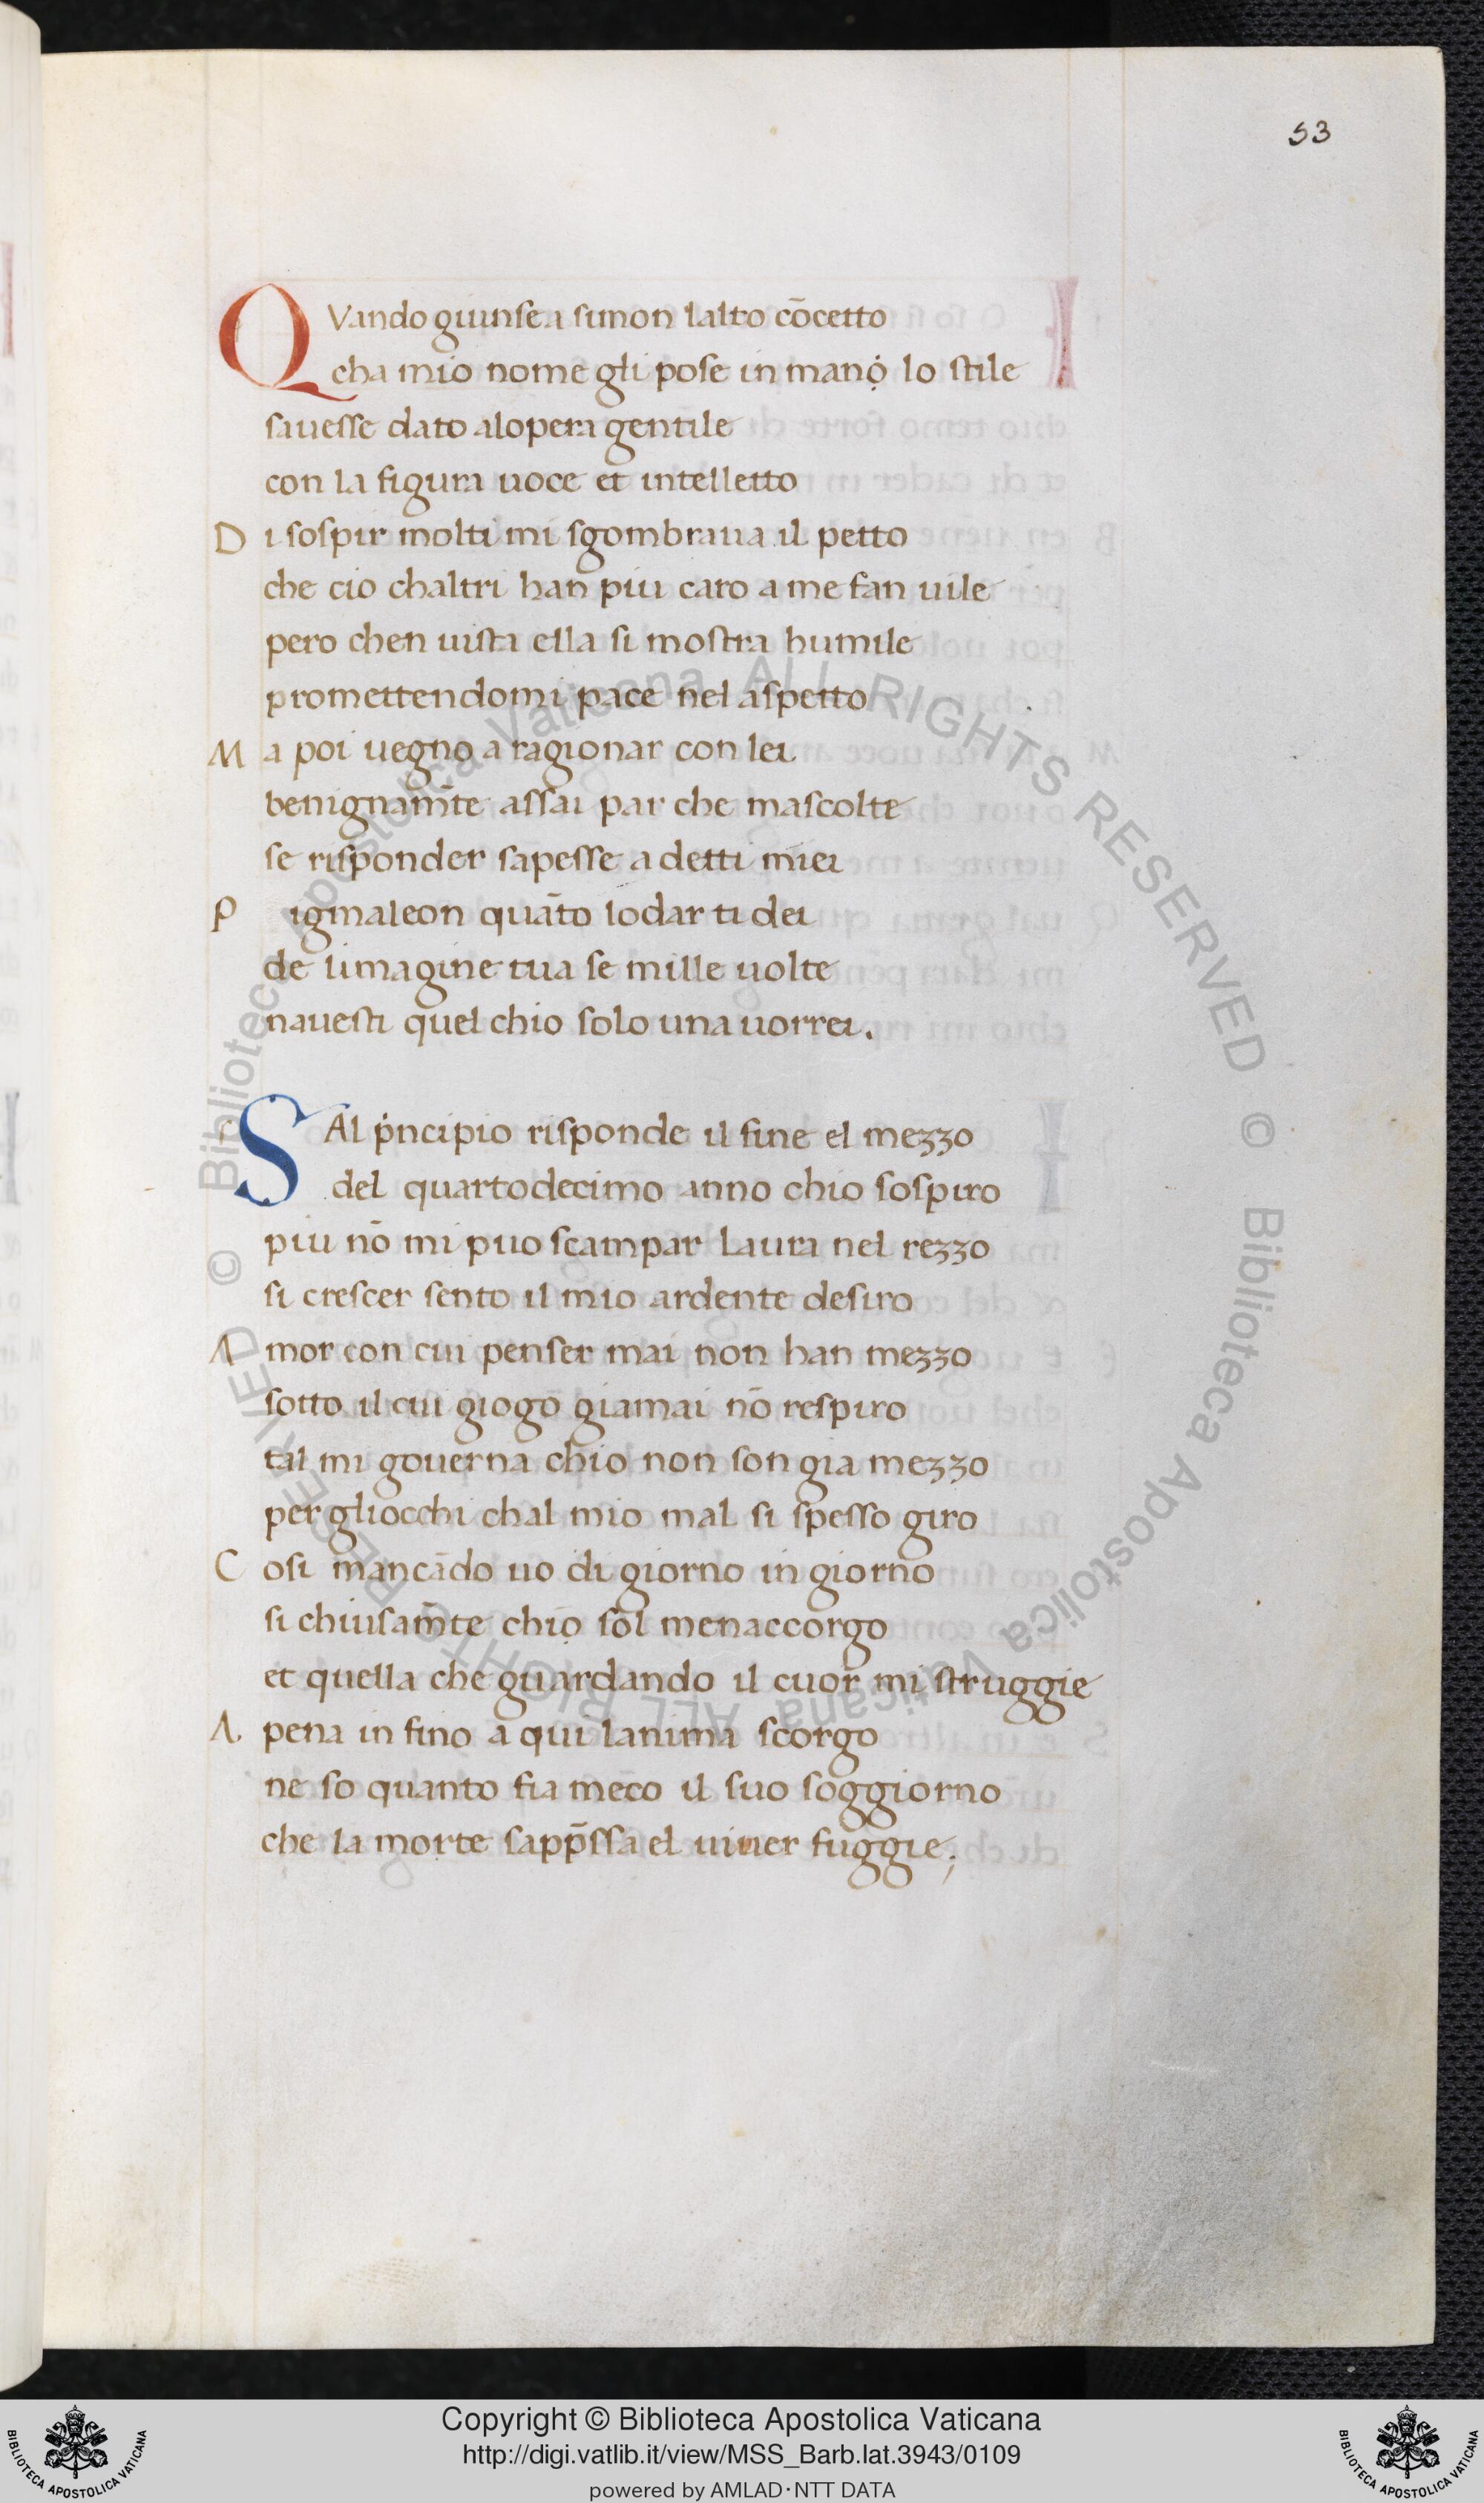 53
QVando giunse a simon lalto cōcetto
cha mio nome gli pose in manọ lo stile
sauesse dato alopera gentile
con la figura uoce et intelletto
Di sospir molti mi sgombraua il petto
che cio chaltri han piu caro a me fan uile
pero chen uista ella si mostra humile
promettendomi pace nel aspetto
Ma poi uegno a ragionar con lei
benignam̄te assai par che mascolte
se risponder sapesse a detti miei
Pigmaleon quāto lodar ti dei
de limagine tua se mille uolte
nauesti quel chio solo una uorrei.
SAl pṙncipio risponde il fine el mezzo
del quartodecimo anno chio sospiro
piu nō mi puo scampar Laura nel rezzo
si crescer sento il mio ardente desiro
Amor con cui penser mai non han mezzo
sotto il cui giogo giamai nō respiro
tal mi gouerna chio non son gia mezzo
per gliocchi chal mio mal si spesso giro
Cosi mancādo uo di giorno in giorno
si chiusam̄te chiọ sol menaccorgo
et quella che guardando il cuor mi struggie
Apena in fino a qui lanima scorgo
ne so quanto fia meco il suo soggiorno
che la morte sapp̄ssa el uiuer fuggie;
© Biblioteca Apostolica Vaticana ALL RIGHTS RESERVED © Biblioteca Apostolica Vaticana ALL RIGHTS RESERVED
Copyright © Biblioteca Apostolica Vaticana
http://digi.vatlib.it/view/MSS_Barb.lat.3943/0109
powered by AMLAD·NTT DATA
BIBLIOTECA APOSTOLICA VATICANA
BIBLIOTECA APOSTOLICA VATICANA